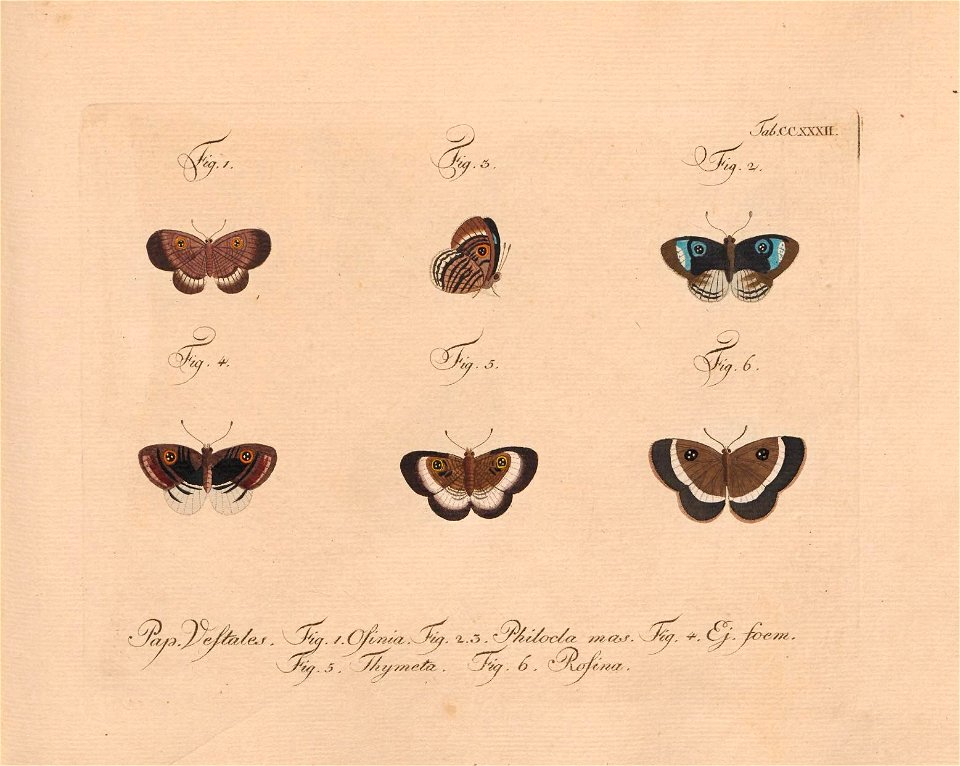 Tab. CCXXXII.
Fig. 1. Fig. 3. Fig. 2.
Fig. 4. Fig. 5. Fig. 6.
Pap. Veſtales. Fig. 1. Oſinia. Fig. 2. 3. Philocla mas. Fig. 4. Ej. foem.
Fig. 5. Thymeta. Fig. 6. Roſina.